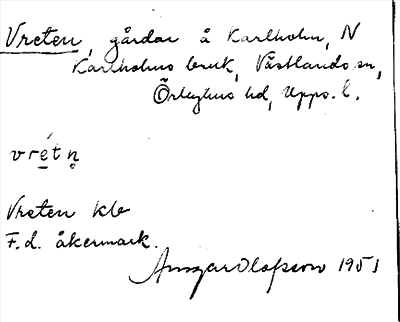 Vreten, gårdar å Karlholm, N
Karlholms bruk, Västlands sn,
Örbyhus hd, Upps. l.
vrét n̥
Vreten klb
F.d. åkermark.
Ansgar Olofsson 1951